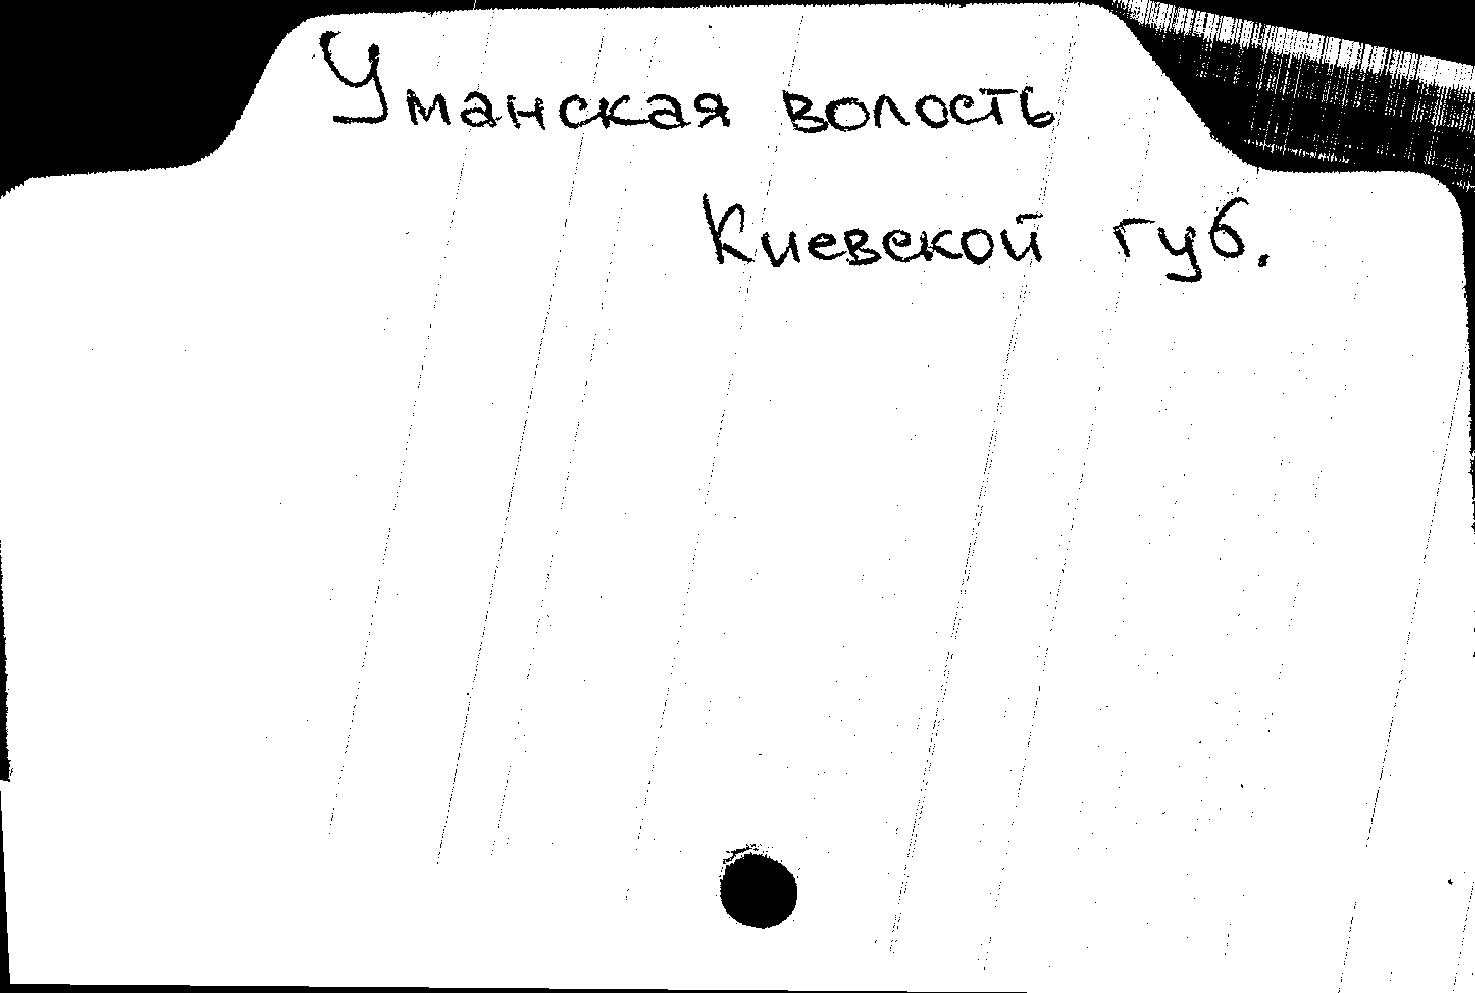 Уманская волость
Киевской губ.